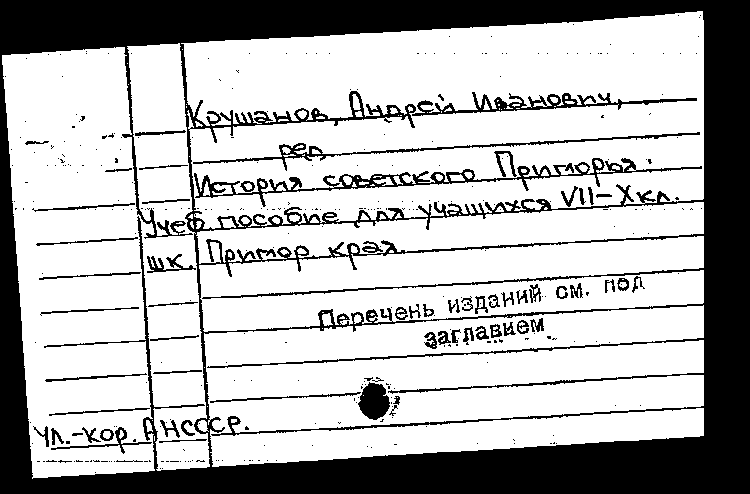 Крушанов, Андрей Иванович,
ред.
История советского Приморья.
Учеб. пособие для учащихся VII-X кл.
шк. Примор. края.
Перечень изданий см. под
заглавием.
Чл.-кор. АН СССР.